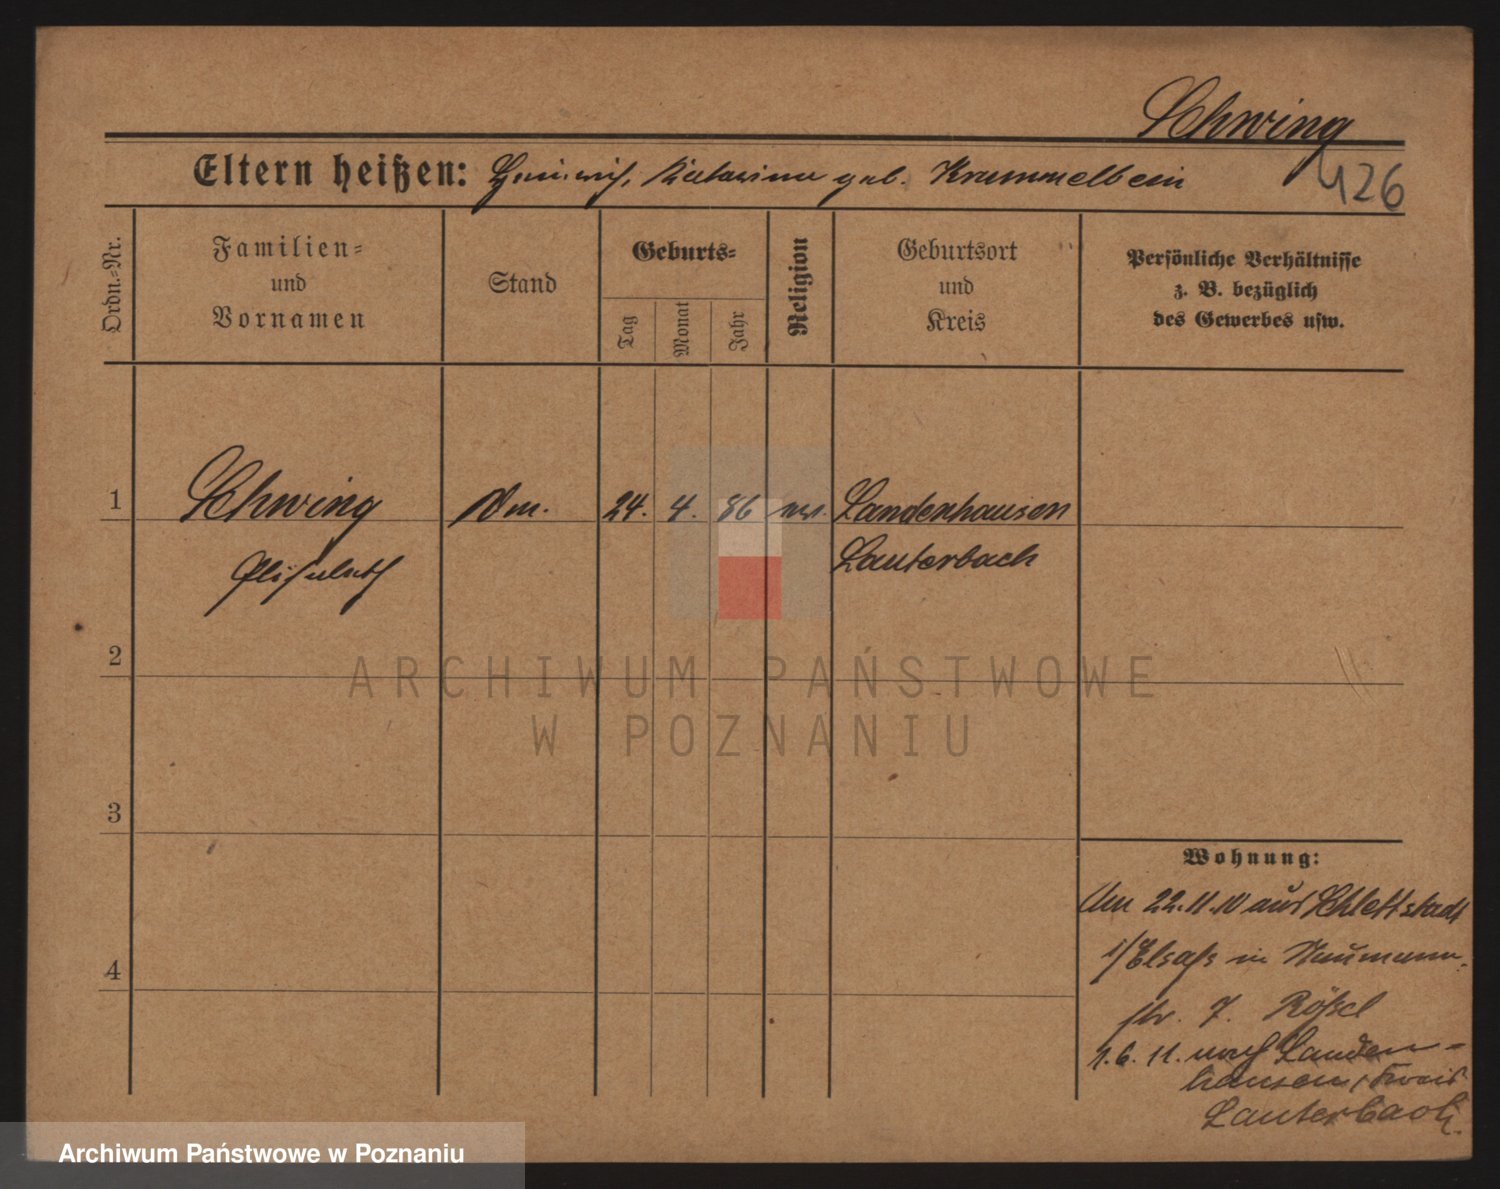 Schwing
426
Eltern heißen: Heinrich, Katarina geb. Krummelbein
Ordn.-Nr.
Familien-
und
Vornamen
Stand
Geburts-
Tag
Monat
Jahr
Religion
Geburtsort
und
Kreis
Persönliche Verhältnisse
z. B. bezüglich
des Gewerbes usw.
1 Schwing 24. 4. 86 Landenhausen
Elisabeth Lauterbach
2
3
4
ARCHIWUM PAŃSTWOWE
W POZNANIU
Wohnung:
Am 22.11.10 aus Schlettstadt
i/Elsaß in Naumann-
str. 7. Rößel
1.6.11. nach Landen-
hausen, Kreis
Lauterbach.
Archiwum Państwowe w Poznaniu